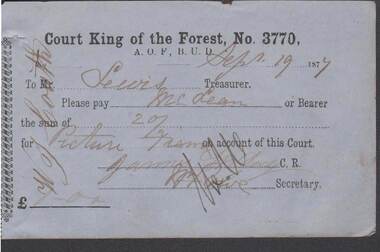 Court King of the Forest, No. 3770,
A. O. F., B. U. D.
Sept. 19 1877
To Mr. Lewis Treasurer.
Please pay McLean or Bearer
the sum of 20/
for Picture Frame on account of this Court.
James C. R.
Secretary.
£